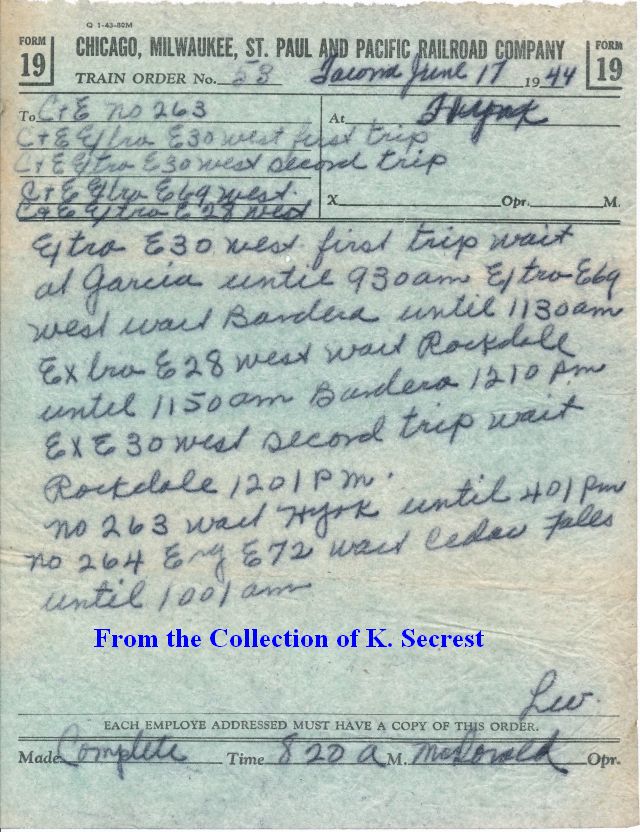 Q 1-43-80M
FORM 19
CHICAGO, MILWAUKEE, ST. PAUL AND PACIFIC RAILROAD COMPANY
FORM 19
TRAIN ORDER No. 58 Tacoma June 17 1944
To C+E No 263
At Hyak
C+E Extra E30 west first trip
C+E Extra E30 west second trip
C+E Extra E69 west
C+E Extra E28 west
X Opr. M.
Extra E30 west first trip wait
at Garcia until 930am Extra E69
west wait Bandera until 1130am
Extra E28 west wait Rockdale
until 1150am Bandera 1210 pm
Ex E30 west second trip wait
Rockdale 1201 PM.
No 263 wait Hyak until 401 pm
No 264 Eng E72 wait Cedar Falls
until 1001 am
From the Collection of K. Secrest
EACH EMPLOYE ADDRESSED MUST HAVE A COPY OF THIS ORDER.
Made Complete Time 820 a M. McDonald Opr.